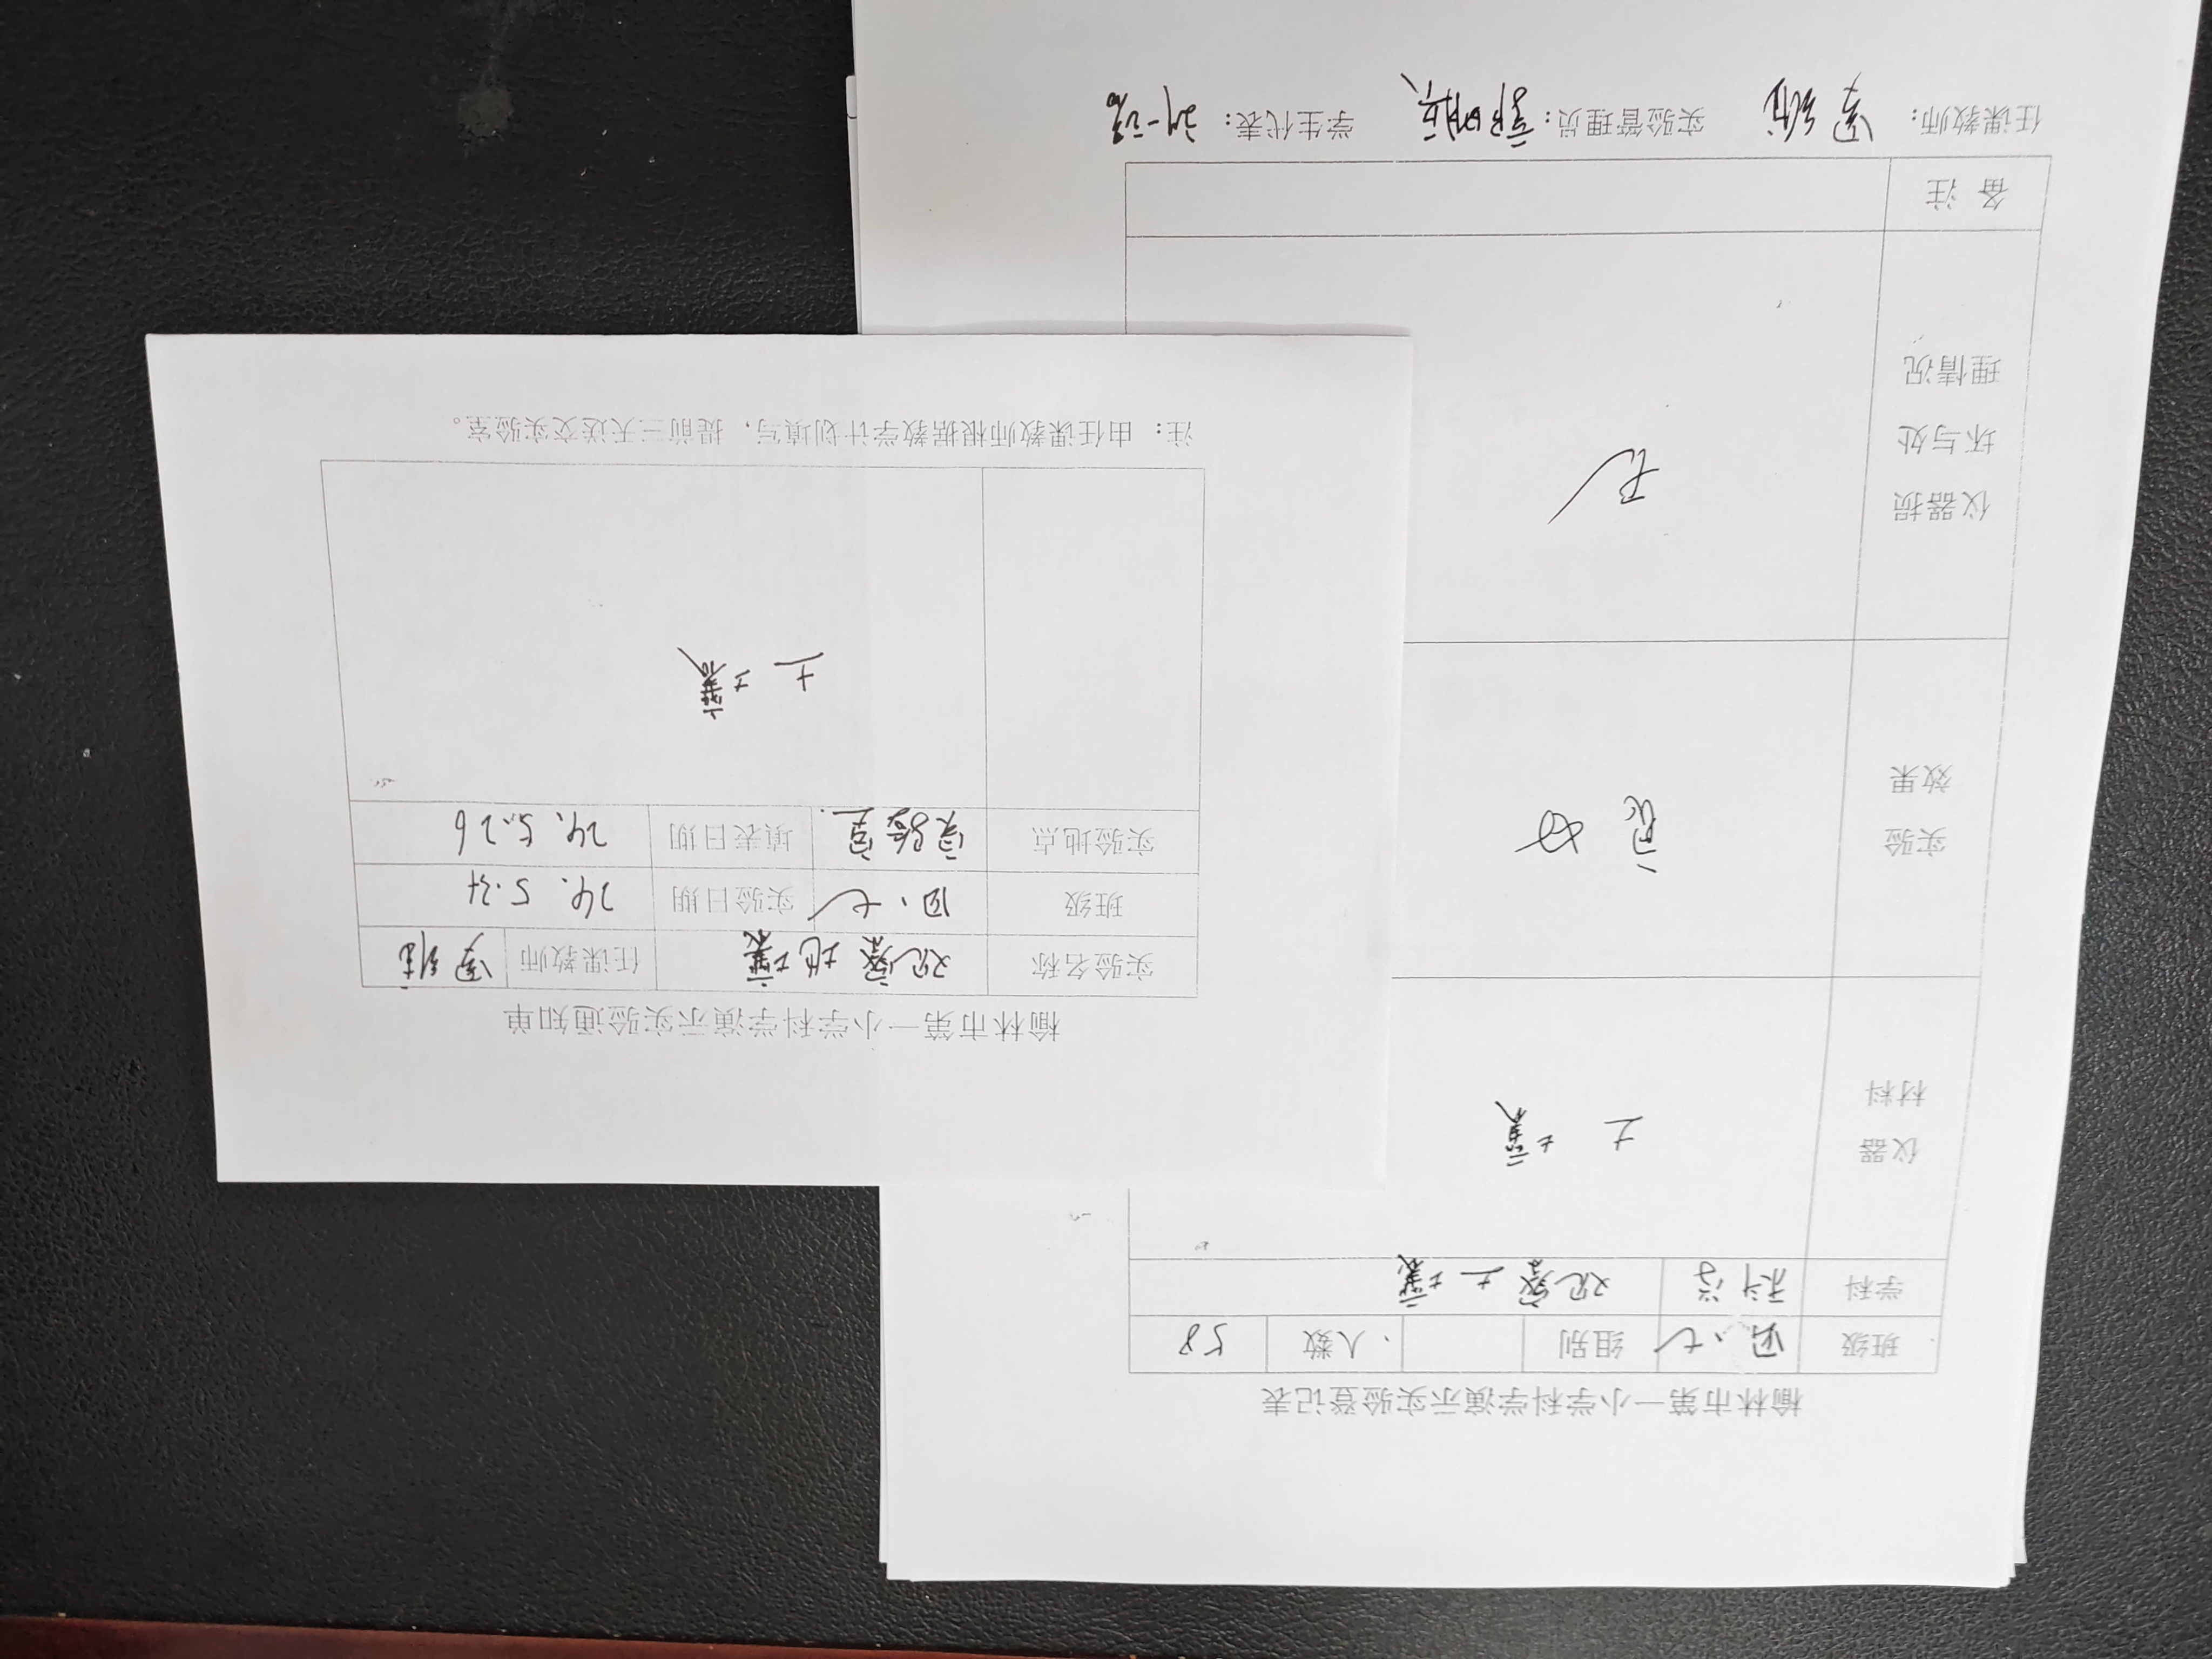 榆林市第一小学科学演示实验通知单
实验名称 观察土壤 任课教师
班级 四、七 实验日期 24. 5.31
实验地点 实验室. 填表日期 24. 5. 26
土壤
注：由任课教师根据教学计划填写，提前三天送交实验室。
榆林市第一小学科学演示实验登记表
班级 四、七 组别 人数 58
学科 科学 观察土壤
仪器
材料
土壤
实验
效果
良好
仪器损
坏与处
理情况
无
备注
任课教师： 实验管理员： 学生代表：